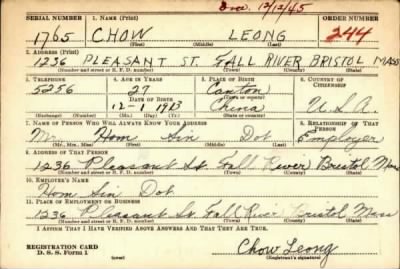 Dec. 12/12/45
SERIAL NUMBER 1. NAME (Print) ORDER NUMBER
1765 CHOW LEONG 244
(First) (Middle) (Last)
2. ADDRESS (Print)
1236 PLEASANT ST. FALL RIVER BRISTOL MASS
(Number and street or R. F. D. number) (Town) (County) (State)
3. TELEPHONE 4. AGE IN YEARS 5. PLACE OF BIRTH 6. COUNTRY OF CITIZENSHIP
5256 27 Canton
DATE OF BIRTH (Town or county)
12-1 1913 China U.S.A.
(Exchange) (No.) (Mo.) (Day) (Yr.) (State or country)
7. NAME OF PERSON WHO WILL ALWAYS KNOW YOUR ADDRESS 8. RELATIONSHIP OF THAT PERSON
Mr. Hom Sin Dot Employer
(Mr., Mrs., Miss) (First) (Middle) (Last)
9. ADDRESS OF THAT PERSON
1236 Pleasant St. Fall River Bristol Mass
(Number and street or R. F. D. number) (Town) (County) (State)
10. EMPLOYER'S NAME
Hom Sin Dot
11. PLACE OF EMPLOYMENT OR BUSINESS
1236 Pleasant St. Fall River Bristol Mass
(Number and street or R. F. D. number) (Town) (County) (State)
I AFFIRM THAT I HAVE VERIFIED ABOVE ANSWERS AND THAT THEY ARE TRUE.
REGISTRATION CARD
D. S. S. Form 1
(over)
Chow Leong
(Registrant's signature)